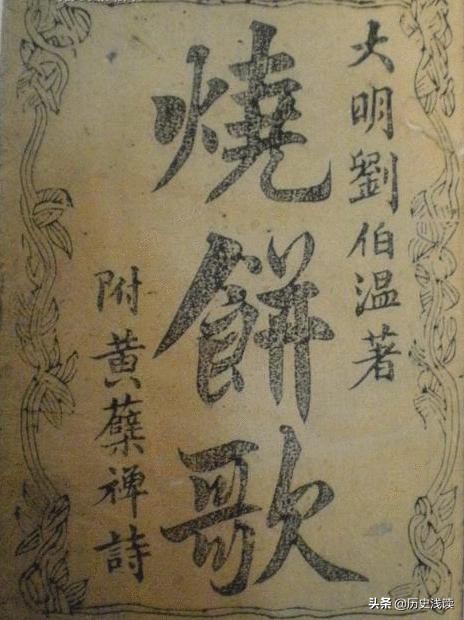 大明劉伯温著
燒餅歌
附黄蘖禅詩
头条 @历史浅读